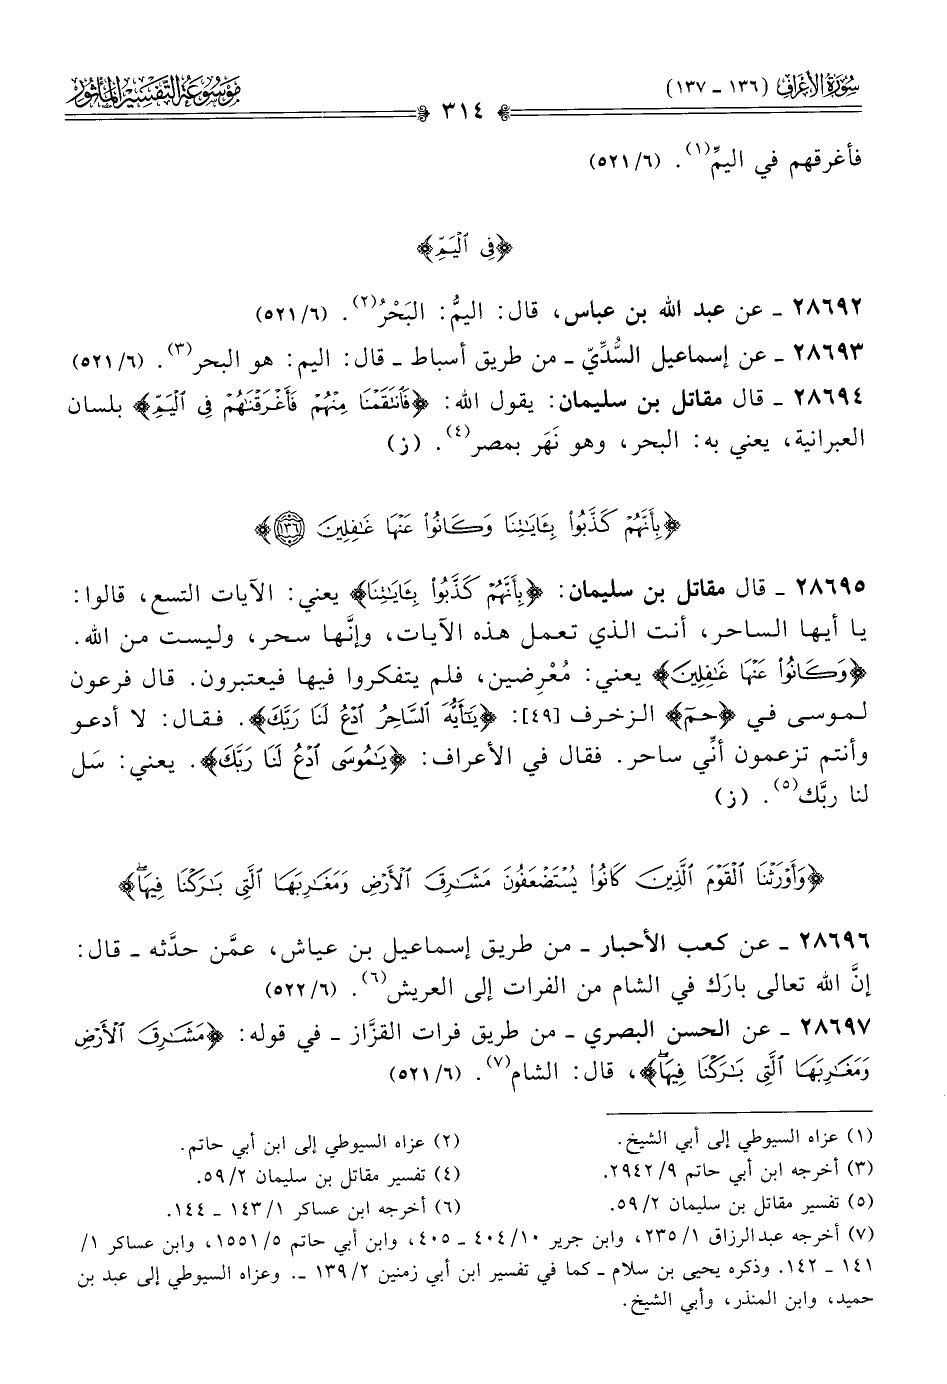 سُورَةُ الأَعْرَافِ (١٣٦ - ١٣٧)
٣١٤
مَوْسُوعَةُ التَّفْسِيرِ المَأْثُورِ
فأغرقهم في اليمِّ(١). (٥٢١/٦)
﴿فِى ٱلْيَمِّ﴾
٢٨٦٩٢ - عن عبد الله بن عباس، قال: اليمُّ: البَحْرُ(٢). (٥٢١/٦)
٢٨٦٩٣ - عن إسماعيل السُّدِّيِّ - من طريق أسباط - قال: اليم: هو البحر(٣). (٥٢١/٦)
٢٨٦٩٤ - قال مقاتل بن سليمان: يقول الله: ﴿فَٱنتَقَمْنَا مِنْهُمْ فَأَغْرَقْنَٰهُمْ فِى ٱلْيَمِّ﴾ بلسان
العبرانية، يعني به: البحر، وهو نَهَر بمصر(٤). (ز)
﴿بِأَنَّهُمْ كَذَّبُوا۟ بِـَٔايَٰتِنَا وَكَانُوا۟ عَنْهَا غَٰفِلِينَ ١٣٦﴾
٢٨٦٩٥ - قال مقاتل بن سليمان: ﴿بِأَنَّهُمْ كَذَّبُوا۟ بِـَٔايَٰتِنَا﴾ يعني: الآيات التسع، قالوا:
يا أيها الساحر، أنت الذي تعمل هذه الآيات، وإنَّها سحر، وليست من الله.
﴿وَكَانُوا۟ عَنْهَا غَٰفِلِينَ﴾ يعني: مُعْرِضين، فلم يتفكروا فيها فيعتبرون. قال فرعون
لموسى في ﴿حمٓ﴾ الزخرف [٤٩]: ﴿يَٰٓأَيُّهَ ٱلسَّاحِرُ ٱدْعُ لَنَا رَبَّكَ﴾. فقال: لا أدعو
وأنتم تزعمون أنِّي ساحر. فقال في الأعراف: ﴿يَٰمُوسَى ٱدْعُ لَنَا رَبَّكَ﴾. يعني: سَل
لنا ربَّك(٥). (ز)
﴿وَأَوْرَثْنَا ٱلْقَوْمَ ٱلَّذِينَ كَانُوا۟ يُسْتَضْعَفُونَ مَشَٰرِقَ ٱلْأَرْضِ وَمَغَٰرِبَهَا ٱلَّتِى بَٰرَكْنَا فِيهَا ۖ﴾
٢٨٦٩٦ - عن كعب الأحبار - من طريق إسماعيل بن عياش، عمَّن حدَّثه - قال:
إنَّ الله تعالى بارَك في الشام من الفرات إلى العريش(٦). (٥٢٢/٦)
٢٨٦٩٧ - عن الحسن البصري - من طريق فرات القزَّاز - في قوله: ﴿مَشَٰرِقَ ٱلْأَرْضِ
وَمَغَٰرِبَهَا ٱلَّتِى بَٰرَكْنَا فِيهَا ۖ﴾، قال: الشام(٧). (٥٢١/٦)
(١) عزاه السيوطي إلى أبي الشيخ.
(٢) عزاه السيوطي إلى ابن أبي حاتم.
(٣) أخرجه ابن أبي حاتم ٢٩٤٢/٩.
(٤) تفسير مقاتل بن سليمان ٥٩/٢.
(٥) تفسير مقاتل بن سليمان ٥٩/٢.
(٦) أخرجه ابن عساكر ١٤٣/١ - ١٤٤.
(٧) أخرجه عبدالرزاق ٢٣٥/١، وابن جرير ٤٠٤/١٠ - ٤٠٥، وابن أبي حاتم ١٥٥١/٥، وابن عساكر ١/
١٤١ - ١٤٢. وذكره يحيى بن سلام - كما في تفسير ابن أبي زمنين ١٣٩/٢ -. وعزاه السيوطي إلى عبد بن
حميد، وابن المنذر، وأبي الشيخ.